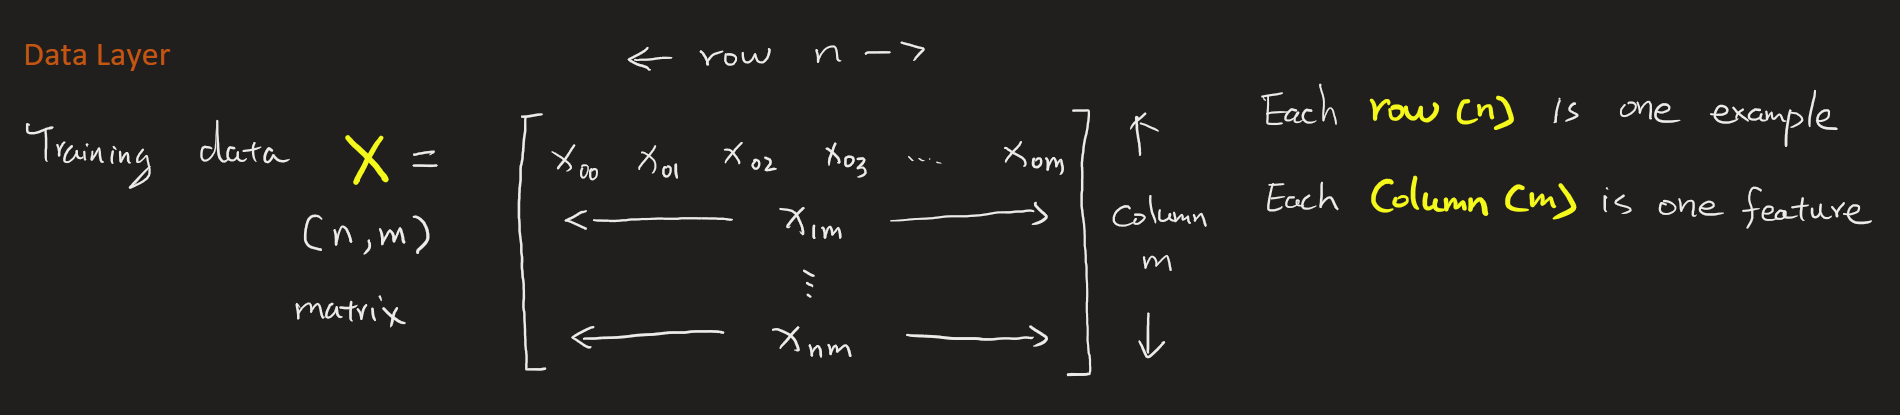 Data Layer
← row n →
Training data X =
(n,m)
matrix
x₀₀ x₀₁ x₀₂ x₀₃ .... x₀ₘ
← x₁ₘ →
⋮
← xₙₘ →
↑
Column
m
↓
Each row (n) is one example
Each Column (m) is one feature